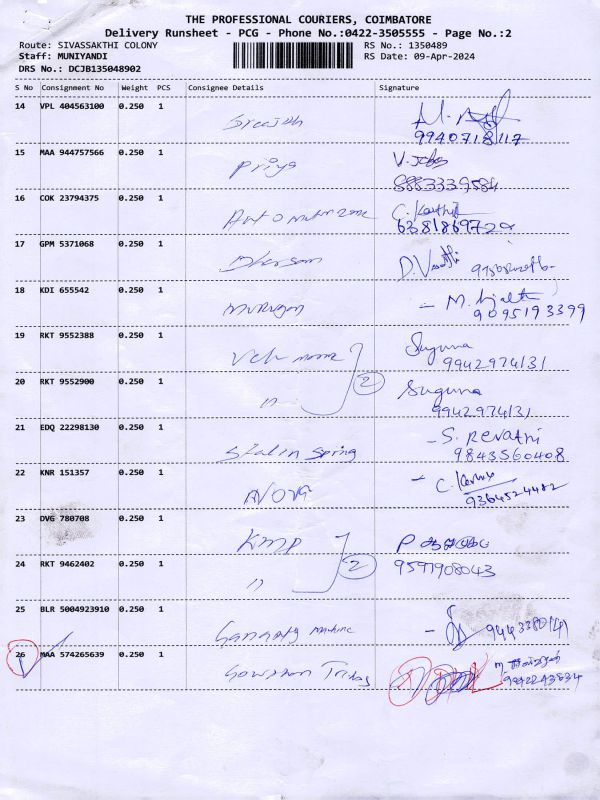 THE PROFESSIONAL COURIERS, COIMBATORE
Delivery Runsheet - PCG - Phone No.:0422-3505555 - Page No.:2
Route: SIVASSAKTHI COLONY RS No.: 1350489
Staff: MUNIYANDI RS Date: 09-Apr-2024
DRS No.: DCJB135048902
S No Consignment No Weight PCS Consignee Details Signature
14 VPL 404563100 0.250 1
9940718117
15 MAA 944757566 0.250 1 Priya V. Jebs
8883339584
16 COK 23794375 0.250 1 C. Karthik
17 GPM 5371068 0.250 1
18 KDI 655542 0.250 1 murugan
9095193399
19 RKT 9552388 0.250 1 Suguna
9942974131
20 RKT 9552900 0.250 1 " 2 Suguna
9942974131
21 EDQ 22298130 0.250 1 Stalin Spring - S. Revathi
9843560408
22 KNR 151357 0.250 1 - C.
9364524482
23 DVG 780708 0.250 1 KMP
24 RKT 9462402 0.250 1 " 2 9597908043
25 BLR 5004923910 0.250 1 machine
26 MAA 574265639 0.250 1
9842243834